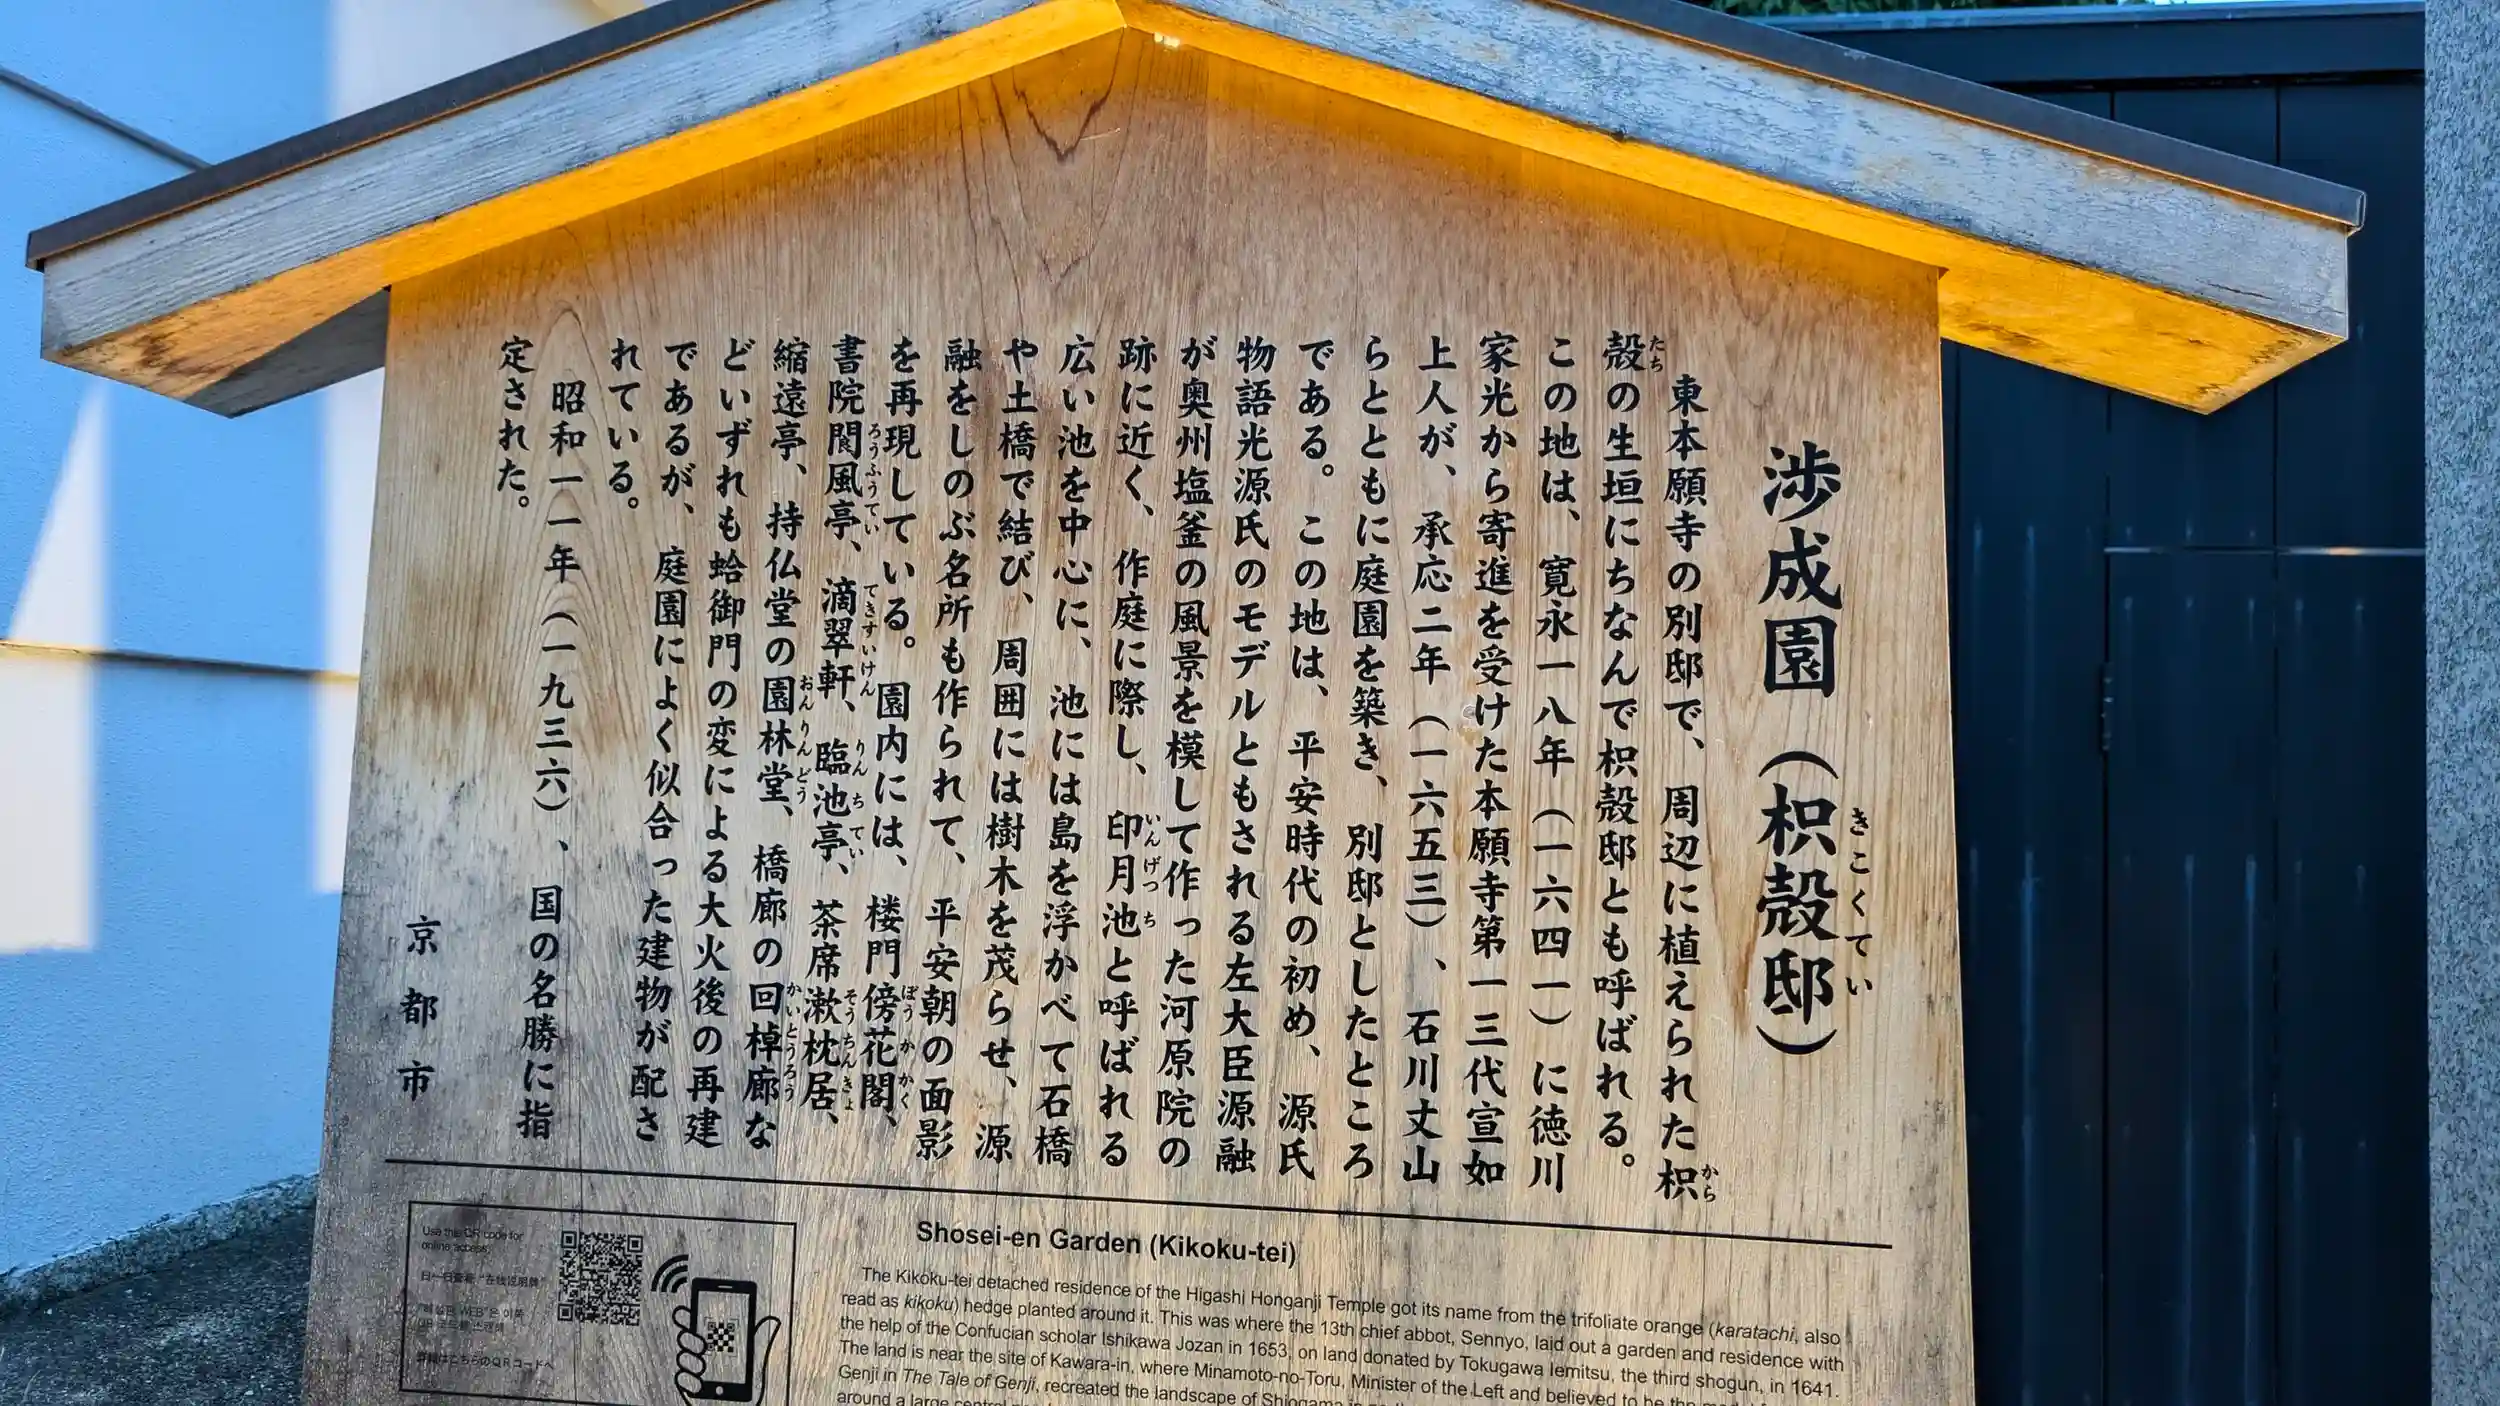 渉成園（枳殻邸）
きこくてい
東本願寺の別邸で、周辺に植えられた枳
から
殻の生垣にちなんで枳殻邸とも呼ばれる。
たち
この地は、寛永一八年（一六四一）に徳川
家光から寄進を受けた本願寺第一三代宣如
上人が、承応二年（一六五三）、石川丈山
らとともに庭園を築き、別邸としたところ
である。この地は、平安時代の初め、源氏
物語光源氏のモデルともされる左大臣源融
が奥州塩釜の風景を模して作った河原院の
跡に近く、作庭に際し、印月池と呼ばれる
いんげつち
広い池を中心に、池には島を浮かべて石橋
や土橋で結び、周囲には樹木を茂らせ、源
融をしのぶ名所も作られて、平安朝の面影
を再現している。園内には、楼門傍花閣、
ぼうかかく
書院閬風亭、滴翠軒、臨池亭、茶席漱枕居、
ろうふうてい てきすいけん りんちてい そうちんきょ
縮遠亭、持仏堂の園林堂、橋廊の回棹廊な
おんりんどう かいとうろう
どいずれも蛤御門の変による大火後の再建
であるが、庭園によく似合った建物が配さ
れている。
昭和一一年（一九三六）、国の名勝に指
定された。
京都市
Use this QR code for
online access.
詳細はこちらのQRコードへ
Shosei-en Garden (Kikoku-tei)
The Kikoku-tei detached residence of the Higashi Honganji Temple got its name from the trifoliate orange (karatachi, also
read as kikoku) hedge planted around it. This was where the 13th chief abbot, Sennyo, laid out a garden and residence with
the help of the Confucian scholar Ishikawa Jozan in 1653, on land donated by Tokugawa Iemitsu, the third shogun, in 1641.
The land is near the site of Kawara-in, where Minamoto-no-Toru, Minister of the Left and believed to be the
Genji in The Tale of Genji, recreated the landscape of Shiogama in
around a large central